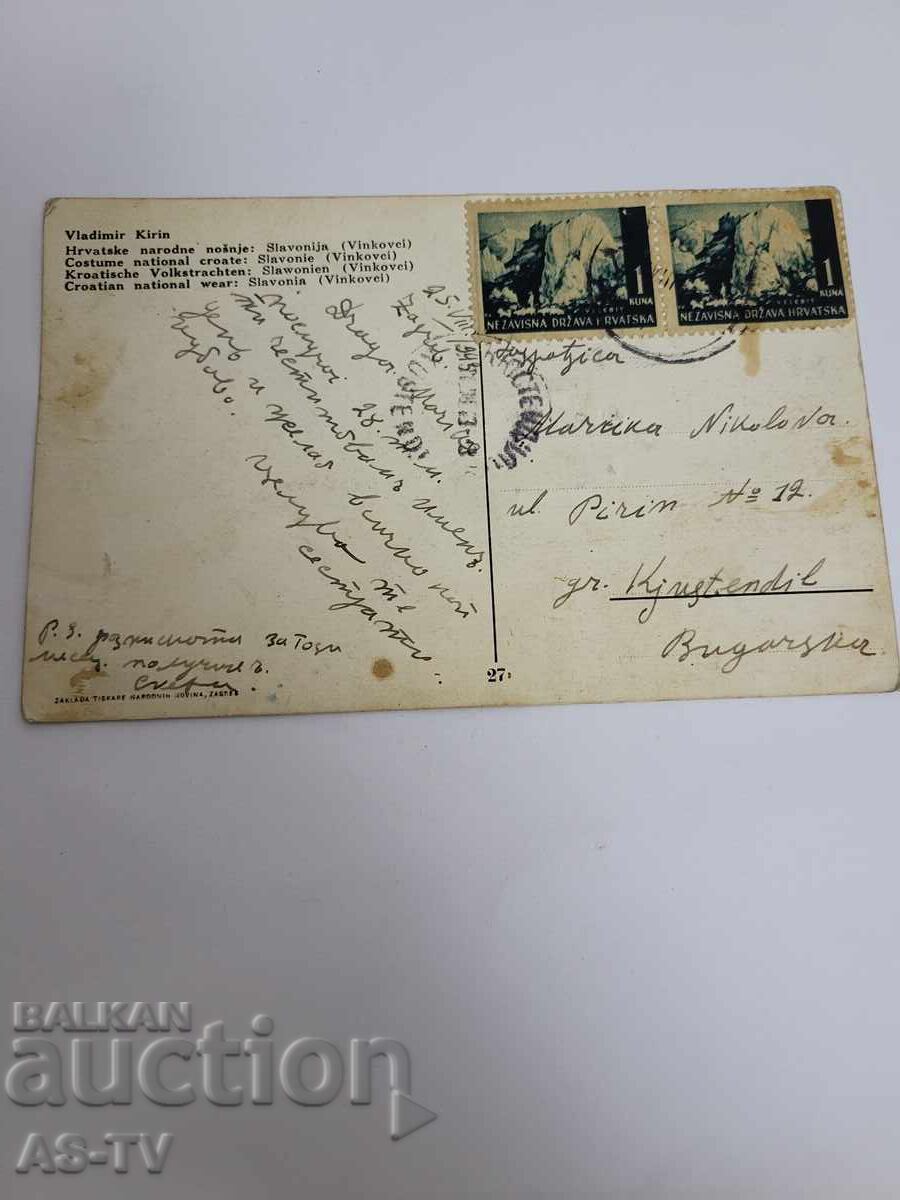 Vladimir Kirin
Hrvatske narodne nošnje: Slavonija (Vinkovci)
Costume national croate: Slavonie (Vinkovci)
Kroatische Volkstrachten: Slawonien (Vinkovci)
Croatian national wear: Slavonia (Vinkovci)
1
KUNA
VELEBIT
NEZAVISNA DRŽAVA HRVATSKA
1
KUNA
VELEBIT
NEZAVISNA DRŽAVA HRVATSKA
25.VIII.
Zagreb.
28.
честитвамъ именъ
день и желая всичко най
хубаво.
целува те
сестра ти
P.S.
за този
месец получих.
Nikolova
ul. Pirin No 12.
gr. Kjustendil
Bugarska
27
ZAKLADA TISKARE NARODNIH NOVINA, ZAGREB
BALKAN
auction
AS-TV